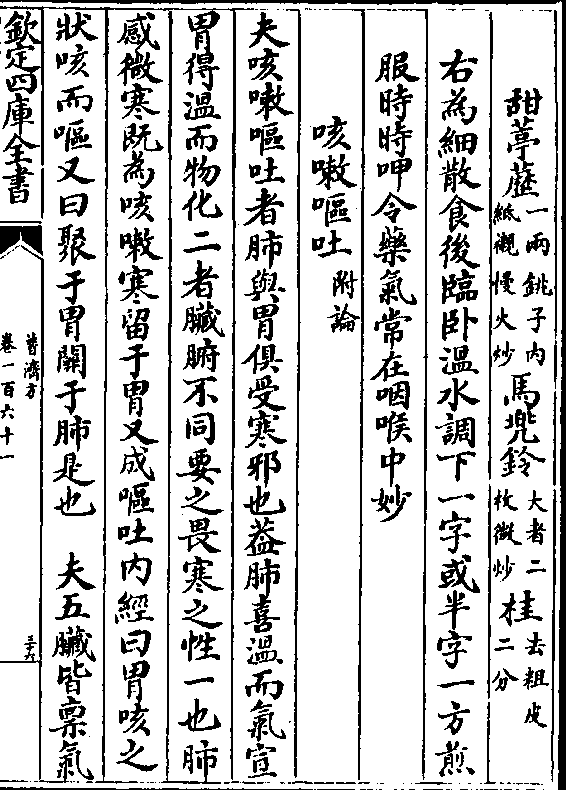 甜葶藶一兩銚子内紙襯慢火炒馬兜鈴大者二枚微炒桂去粗皮二分
右為細散食後臨卧温水調下一字或半字一方煎
服時時呷令藥氣常在咽喉中妙
咳嗽嘔吐附論
夫咳嗽嘔吐者肺與胃俱受寒邪也葢肺喜温而氣宣
胃得温而物化二者臟腑不同要之畏寒之性一也肺
感微寒既為咳嗽寒留于胃又成嘔吐内經曰胃咳之
狀咳而嘔又曰聚于胃關于肺是也　夫五臟皆禀氣
欽定四庫全書
普濟方
卷一百六十一
三十六